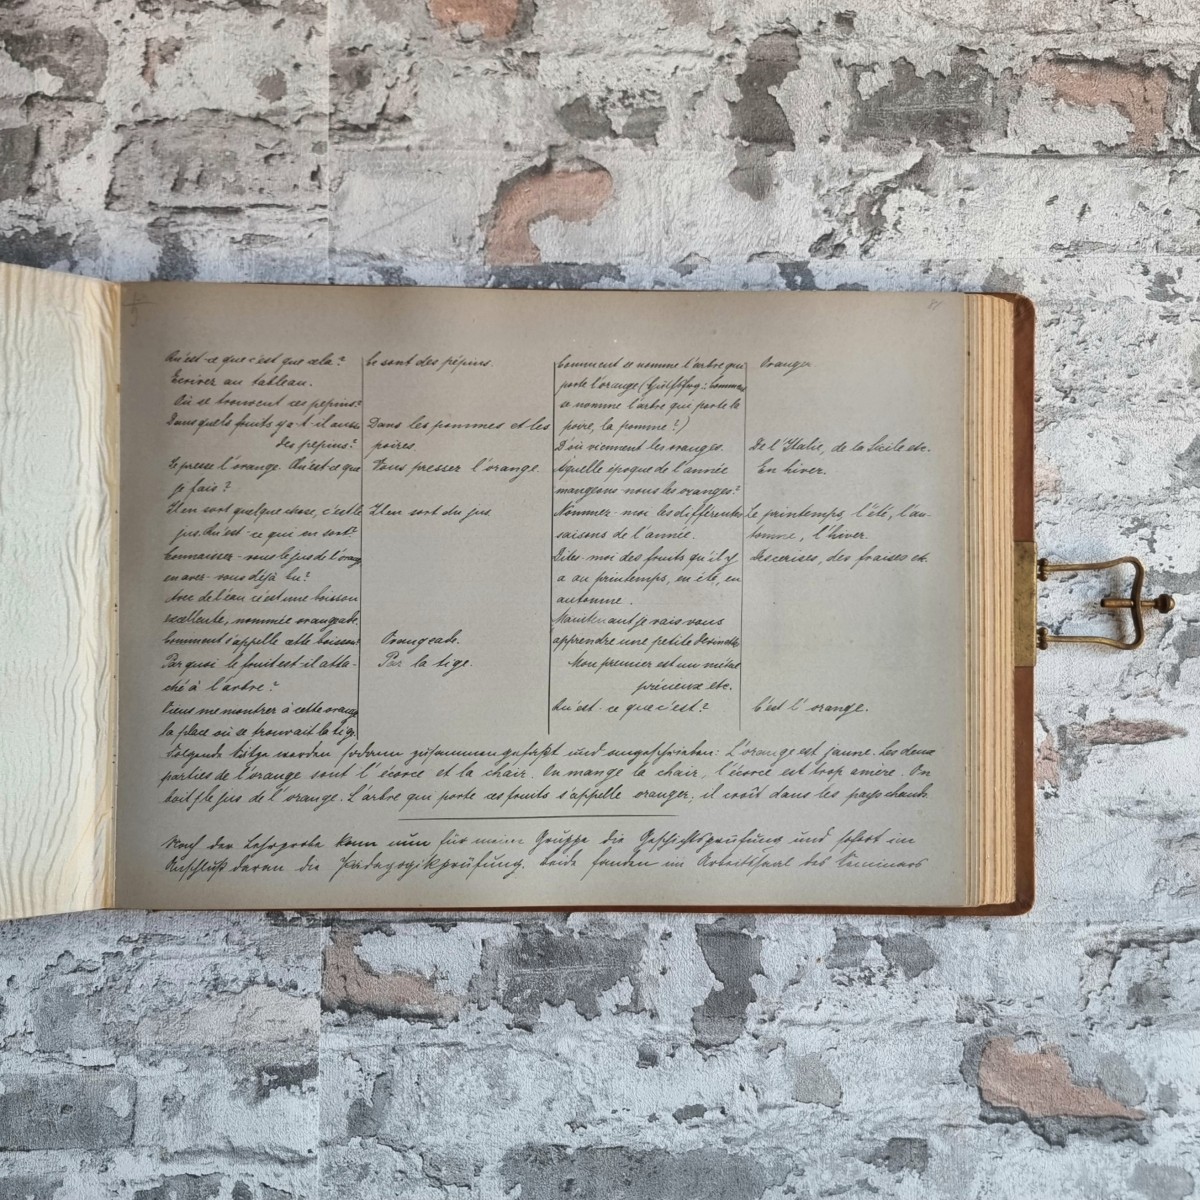 Qu'est-ce que c'est que cela?
Ecrivez au tableau.
Où se trouvent ces pepins?
Dans quels fruits y a-t-il aussi
des pepins?
Je presse l'orange. Qu'est-ce que
je fais?
Il en sort quelque chose, c'est le
jus. Qu'est-ce qui en sort?
Connaissez-vous le jus de l'orange
en avez-vous déjà bu?
Avec de l'eau c'est une boisson
excellente, nommée orangeade.
Comment s'appelle cette boisson?
Par quoi le fruit est-il atta-
ché à l'arbre?
Viens me montrer à cette orange
la place où se trouvait la tige.
Ce sont des pépins.
Dans les pommes et les
poires.
Vous pressez l'orange.
Il en sort du jus
Orangeade.
Par la tige.
Comment se nomme l'arbre qui
porte l'orange (Hülfsfrg.: Comment
se nomme l'arbre qui porte la
poire, la pomme?)
D'où viennent les oranges.
A quelle époque de l'année
mangeons-nous les oranges?
Nommez-moi les différentes
saisons de l'année.
Dites-moi des fruits qu'il y
a au printemps, en été, en
automne.
Maintenant je vais vous
apprendre une petite devinette
Mon premier est un métal
précieux etc.
Qu'est-ce que c'est?
Oranger
De l'Italie, de la Sicile etc.
En hiver.
Le printemps, l'été, l'au-
tomne, l'hiver.
Des cerises, des fraises etc.
C'est l'orange.
Folgende Sätze werden sodann zusammengefaßt und angeschrieben: L'orange est jaune. Les deux
parties de l'orange sont l'écorce et la chair. On mange la chair, l'écorce est trop amère. On
boit le jus de l'orange. L'arbre qui porte ces fruits s'appelle oranger; il croît dans les pays chauds.
Nach der Lehrprobe kam nun für meine Gruppe die Geschichtsprüfung und sofort im
Anschluß daran die Pädagogikprüfung, beide fanden im Arbeitssaal des Seminars